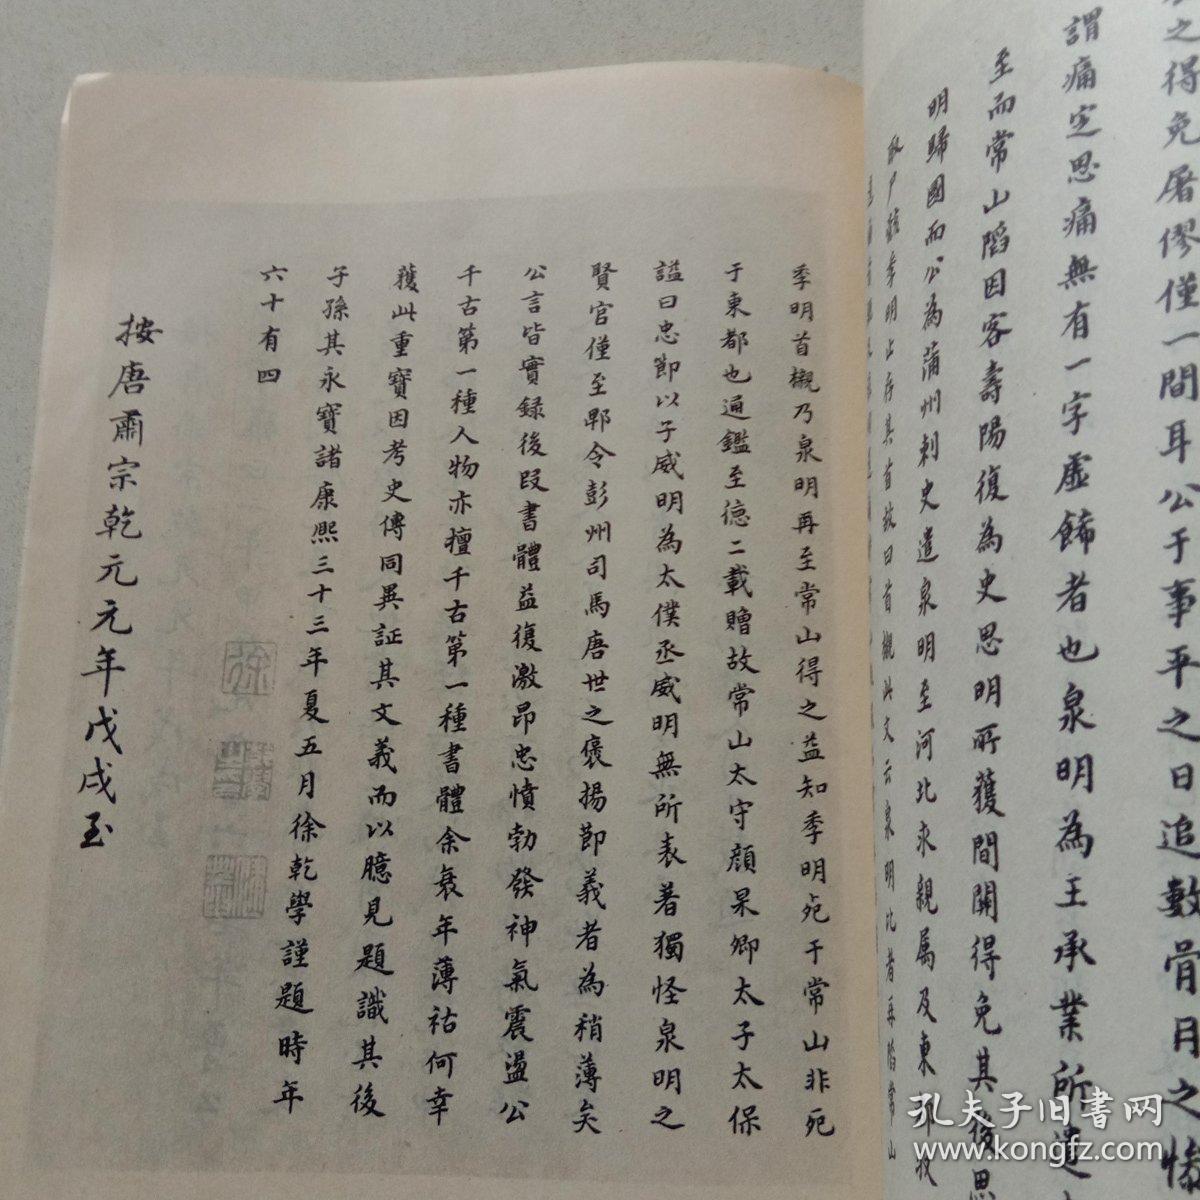 之得免屠僇僅一間耳公于事平之日追數骨肉之慘
謂痛定思痛無有一字虛飾者也泉明為王承業所遣
至而常山陷因客壽陽復為史思明所獲間關得免其後思
明歸國而公為蒲州刺史遣泉明至河北求親屬及東
季明止存其首故曰首櫬此文云泉明比者再陷常山
季明首櫬乃泉明再至常山得之益知季明死于常山非死
于東都也通鑑至德二載贈故常山太守顔杲卿太子太保
謚曰忠節以子威明為太僕丞威明無所表著獨怪泉明之
賢官僅至郫令彭州司馬唐世之褒揚節義者為稍薄矣
公言皆實録後段書體益復激昂忠憤勃發神氣震盪公
千古第一種人物亦擅千古第一種書體余衰年薄祜何幸
獲此重寶因考史傳同異証其文義而以臆見題識其後
子孫其永寶諸康熙三十三年夏五月徐乾學謹題時年
六十有四
按唐肅宗乾元元年戊戌至
孔夫子旧书网
www.kongfz.com